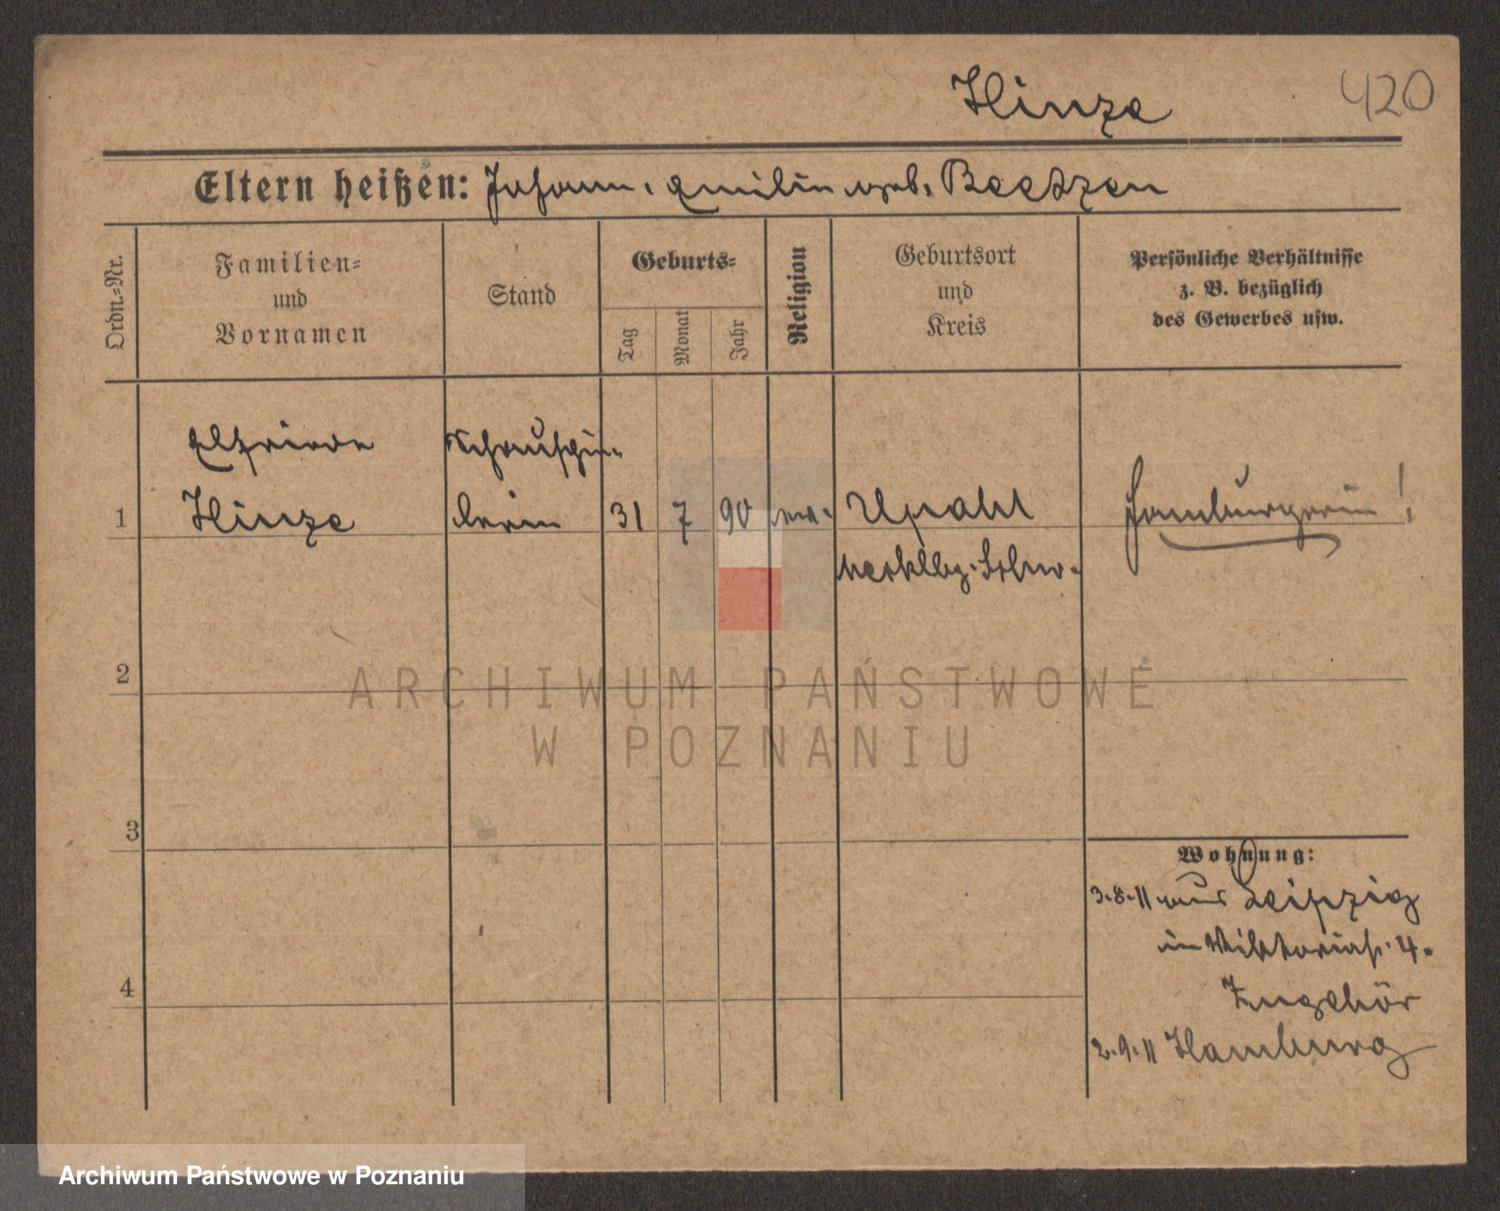 Hinze
420
Eltern heißen: Johann, Emilin geb. Beetzen
Ordn.=Nr.
Familien=
und
Vornamen
Stand
Geburts=
Tag
Monat
Jahr
Religion
Geburtsort
und
Kreis
Persönliche Verhältnisse
z. B. bezüglich
des Gewerbes usw.
Elfriede Schauspie-
1 Hinze lerin 31 7 90 ev. Upahl Hamburgerin!
Mecklbg. Schw.
2
3
4
Wohnung:
3.8.11 aus Leipzig
in Viktoriastr. 4.
2.9.11 Hamburg
ARCHIWUM PAŃSTWOWE
W POZNANIU
Archiwum Państwowe w Poznaniu